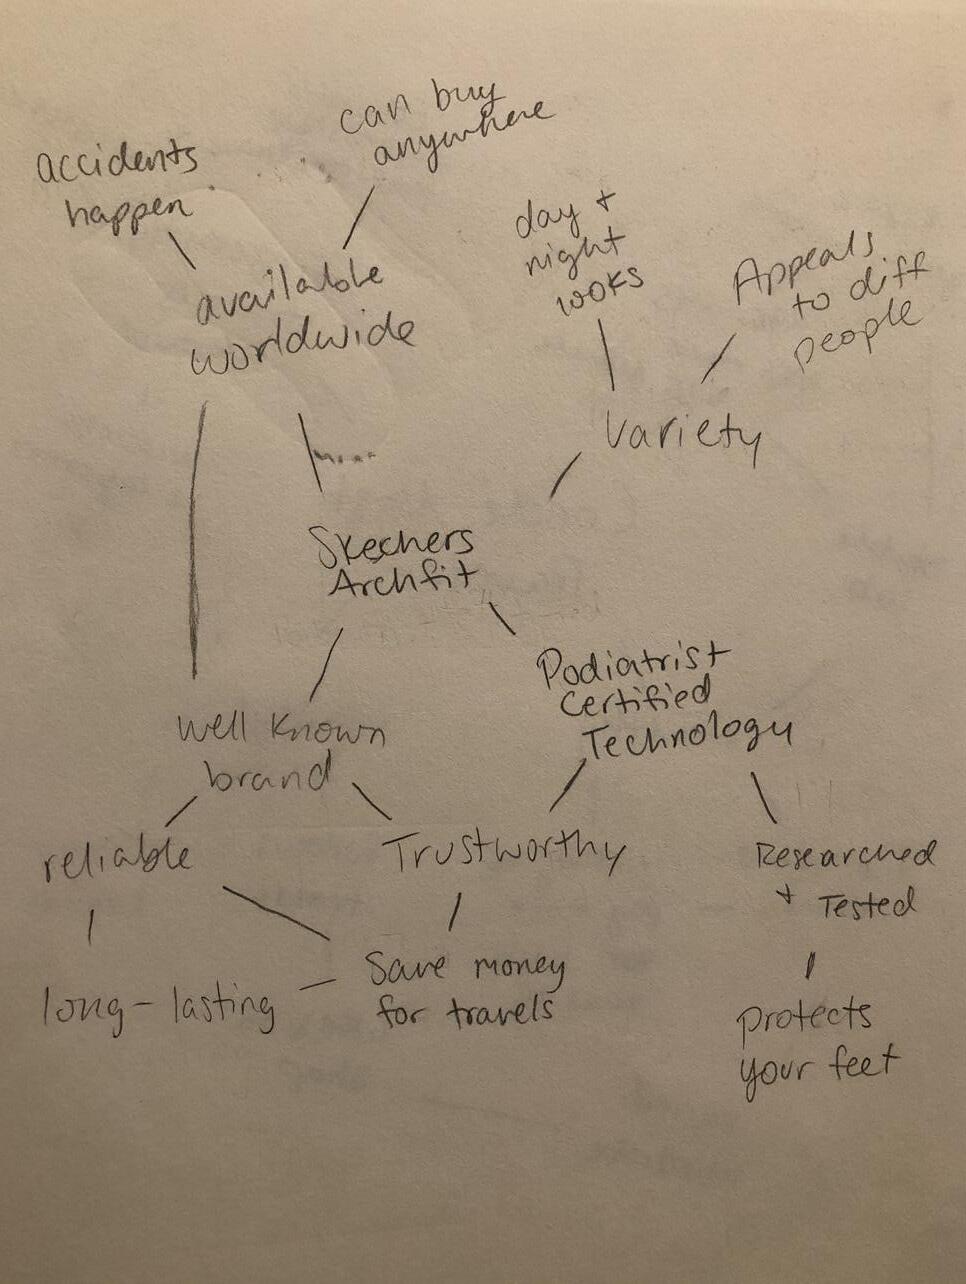 can buy
anywhere
accidents
happen
available
worldwide
day +
night
looks
Appeals
to diff
people
Variety
Skechers
Archfit
Podiatrist
Certified
Technology
well known
brand
reliable
Trustworthy
Researched
+ Tested
long-lasting
Save money
for travels
protects
your feet